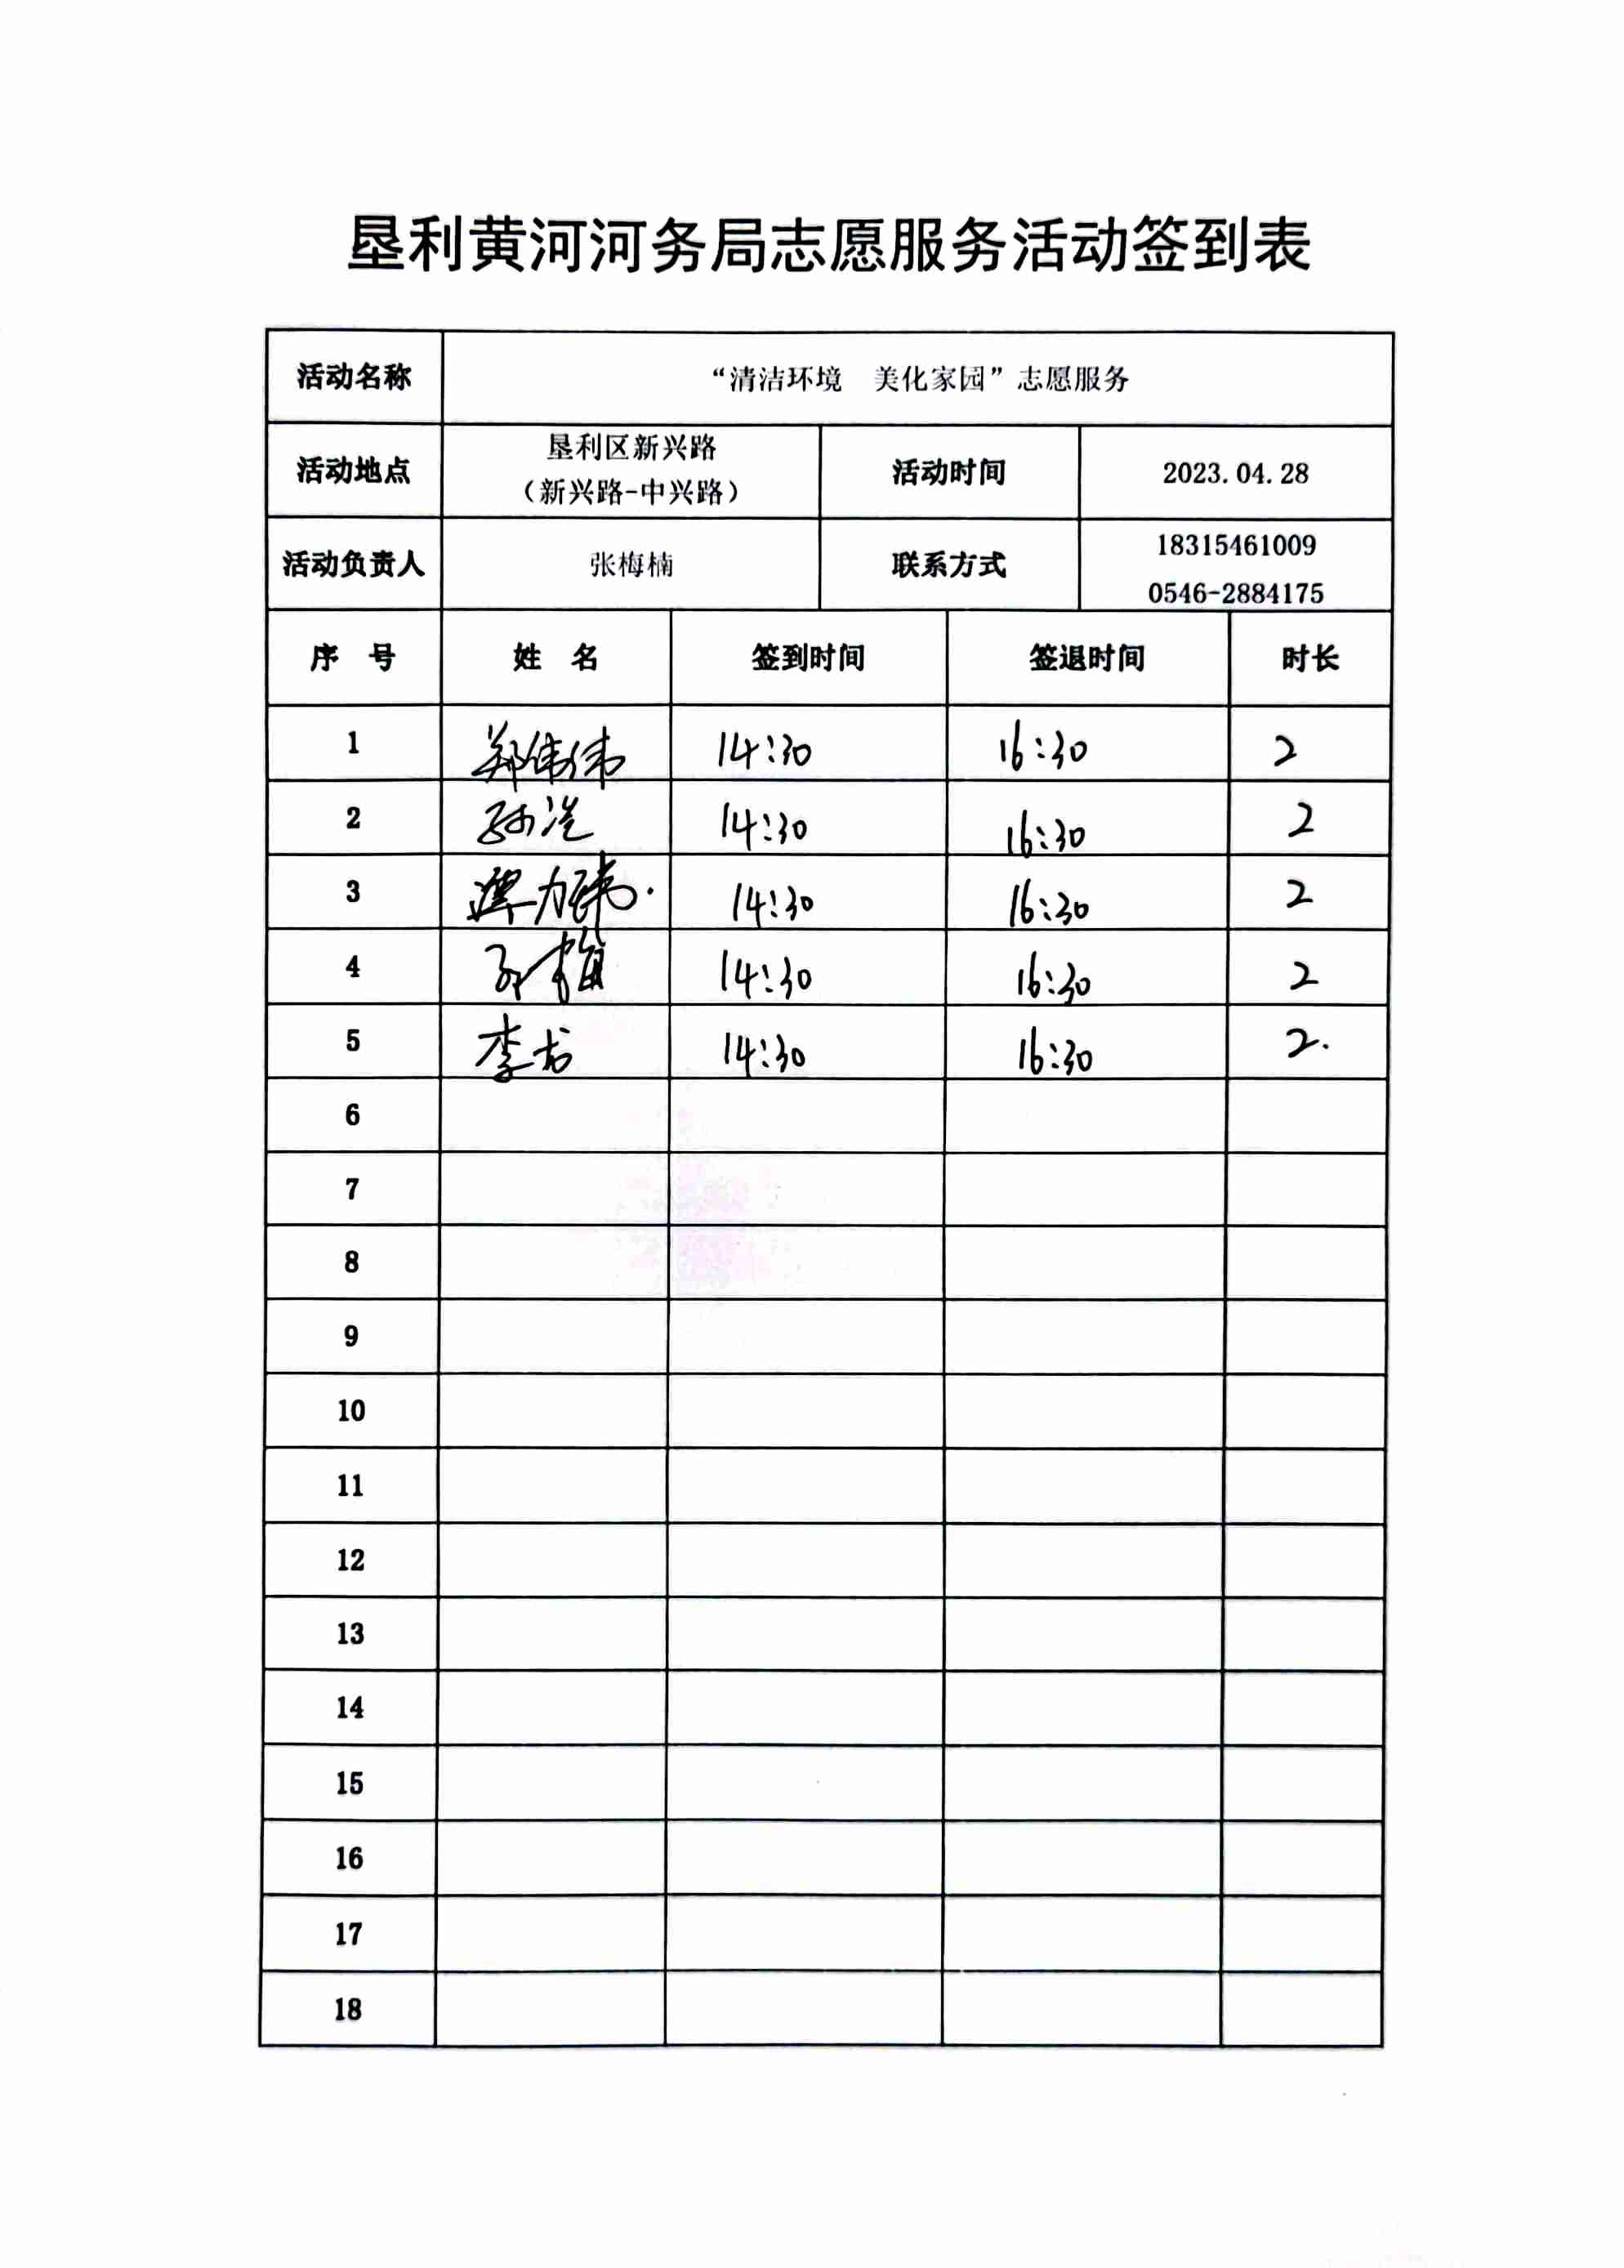 垦利黄河河务局志愿服务活动签到表
活动名称 “清洁环境 美化家园”志愿服务
活动地点 垦利区新兴路
（新兴路-中兴路） 活动时间 2023.04.28
活动负责人 张梅楠 联系方式 18315461009
0546-2884175
序 号 姓 名 签到时间 签退时间 时长
1 郑伟伟 14:30 16:30 2
2 14:30 16:30 2
3 14:30 16:30 2
4 14:30 16:30 2
5 李龙 14:30 16:30 2.
6
7
8
9
10
11
12
13
14
15
16
17
18